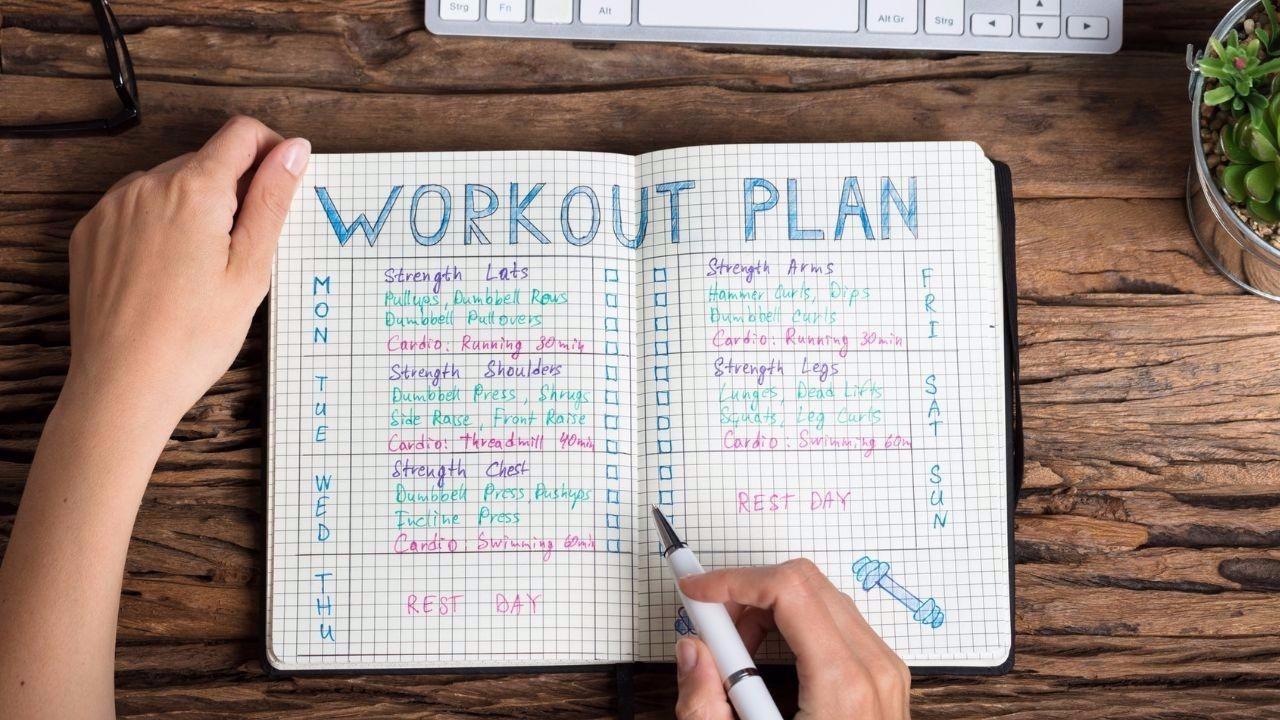 Strg Fn Alt Alt Gr Strg
WORKOUT PLAN
MON
Strength Lats
Pullups, Dumbbell Rows
Dumbbell Pullovers
Cardio: Running 30min
TUE
Strength Shoulders
Dumbbell Press, Shrugs
Side Raise, Front Raise
Cardio: Threadmill 40min
WED
Strength Chest
Dumbbell Press Pushups
Incline Press
Cardio: Swimming 60min
THU
REST DAY
FRI
Strength Arms
Hammer Curls, Dips
Dumbbell Curls
Cardio: Running 30min
SAT
Strength Legs
Lunges, Dead Lifts
Squats, Leg Curls
Cardio: Swimming 60m
SUN
REST DAY